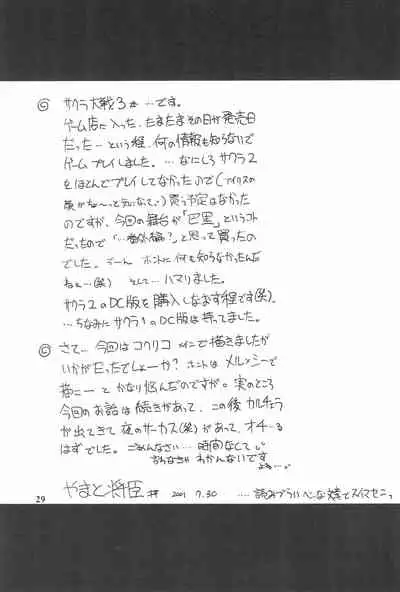 サクラ大戦3 …です。
ゲーム店に入った、たまたまその日が発売日
だったー という程、何の情報も知らないで
ゲームプレイしました。…なにしろサクラ2
をほとんどプレイしてなかったので(アイリスの
気になって)買う予定はなかった
のですが、今回の舞台が「巴里」というコト
だったので「…番外編?」と思って買ったの
でした。うーん ホントに何も知らなかったんだ
ねぇ…(笑) そして…ハマりました。
サクラ2のDC版を購入しなおす程です(笑)。
…ちなみにサクラ1のDC版は持てました。
さて… 今回はコクリコ メインで描きましたが
いかがだったでしょーか? ホントは メル・シーで
描こー と かなり悩んだのですが。実のところ
今回のお話は続きがあって、この後 カルチェラ
が出てきて 夜のサーカス(笑)があって、オチーる
はずでした。ごめんなさい… 時間なくて
わかんないです
やまと将臣 拝 2001 7.30 …読みづらい
29